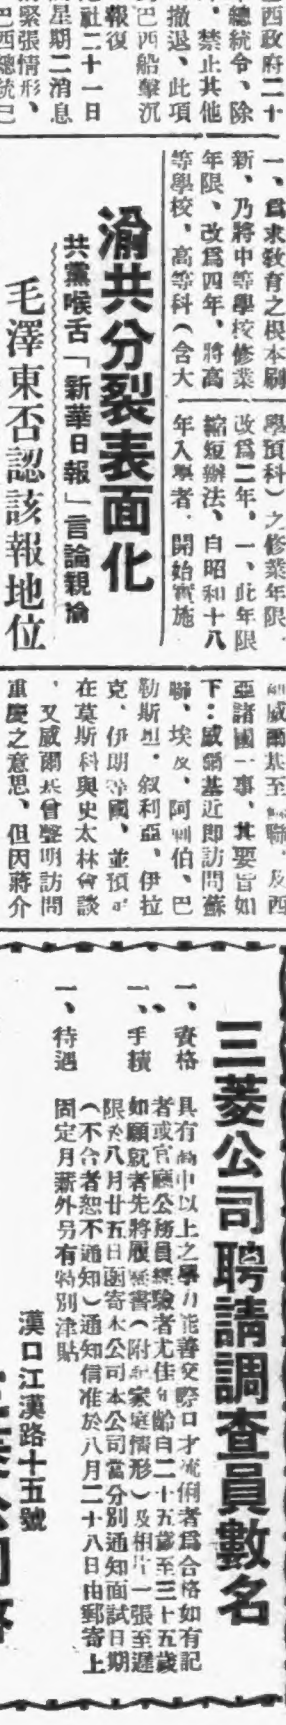 西政府二十
總統令、除
、禁止其他
撤退、此項
巴西船擊沉
報復
社二十一日
星期二消息
緊張情形、
巴西總統已
一、爲求敎育之根本刷
新、乃將中等學校修業
年限、改爲四年、將高
等學校、高等科（含大
學預科）之修業年限、
改爲二年、一、此年限
縮短辦法、自昭和十八
年入學者、開始實施
渝共分裂表面化
共黨喉舌「新華日報」言論親渝
毛澤東否認該報地位
威爾基至蘇聯、及西
亞諸國一事、其要旨如
下：威爾基近即訪問蘇
聯、埃及、阿剌伯、巴
勒斯坦、叙利亞、伊拉
克、伊朗等國、並預
在莫斯科與史太林會談
、又威爾基曾聲明訪問
重慶之意思、但因蔣介
三菱公司聘請調查員數名
一、資格
具有高中以上之學力能善交際口才流俐者爲合格如有記
者或官廳公務員經驗者尤佳年齡自二十五歲至三十五歲
一、手續
如願就者先將履歷書（附紀家庭情形）及相片一張至遲
限於八月廿五日函寄本公司本公司當分別通知面試日期
（不合者恕不通知）通知信准於八月二十八日由郵寄上
一、待遇
固定月薪外另有特別津貼
漢口江漢路十五號